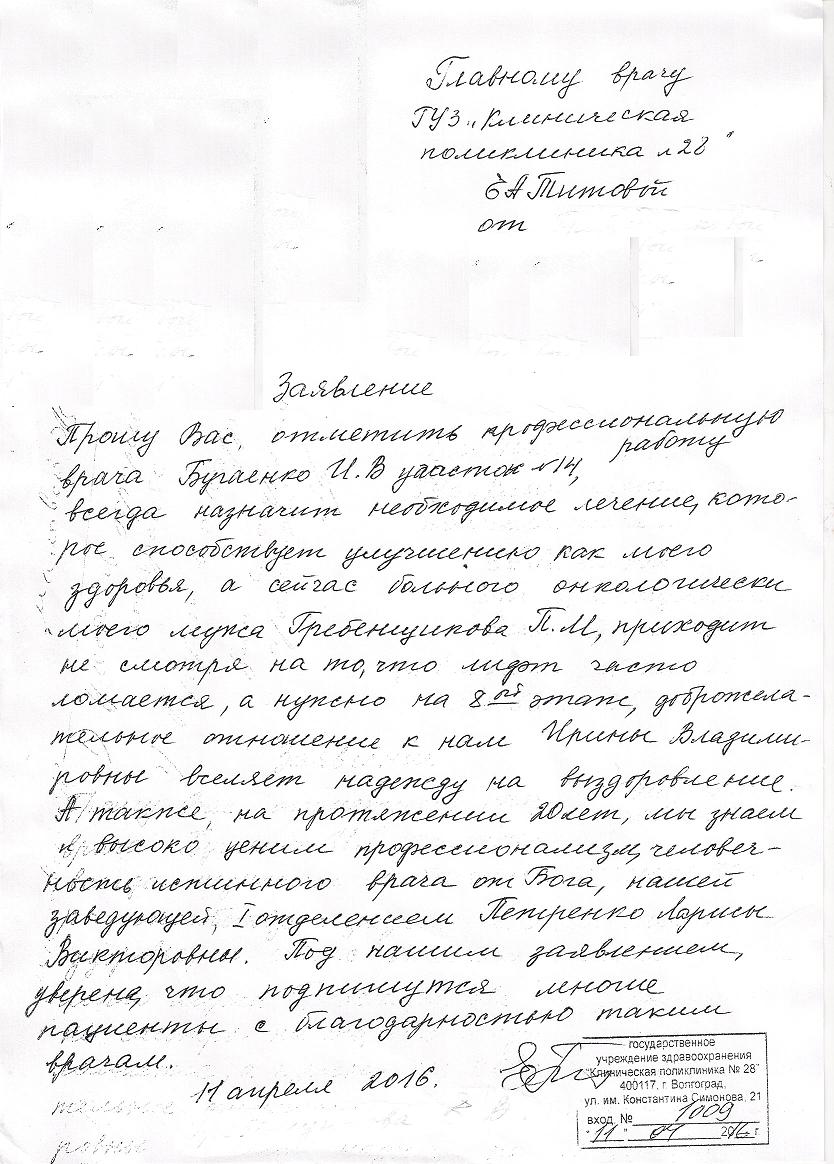 Главному врачу
ГУЗ „Клиническая
поликлиника №28"
Е А Титовой
от
Заявление
Прошу Вас, отметить профессиональную
работу
врача Бугаенко И.В участок №14,
всегда назначит необходимое лечение, кото-
рое способствует улучшению как моего
здоровья, а сейчас больного онкологически
моего мужа Гребенщикова П.М, приходит
не смотря на то, что лифт часто
ломается, а нужно на 8ой этаж, доброжела-
тельное отношение к нам Ирины Владими-
ровны вселяет надежду на выздоровление.
А также, на протяжении 20 лет, мы знаем
и высоко ценим профессионализм, человеч-
ность истинного врача от Бога, нашей
заведующей, I отделением Петренко Ларисы
Викторовны. Под нашим заявлением,
уверена, что подпишутся многие
пациенты с благодарностью таким
врачам.
11 апреля 2016.
государственное
учреждение здравоохранения
"Клиническая поликлиника № 28"
400117, г. Волгоград,
ул. им. Константина Симонова, 21
вход. № 1009
"11" 04 2016 г.
тельное
ровны